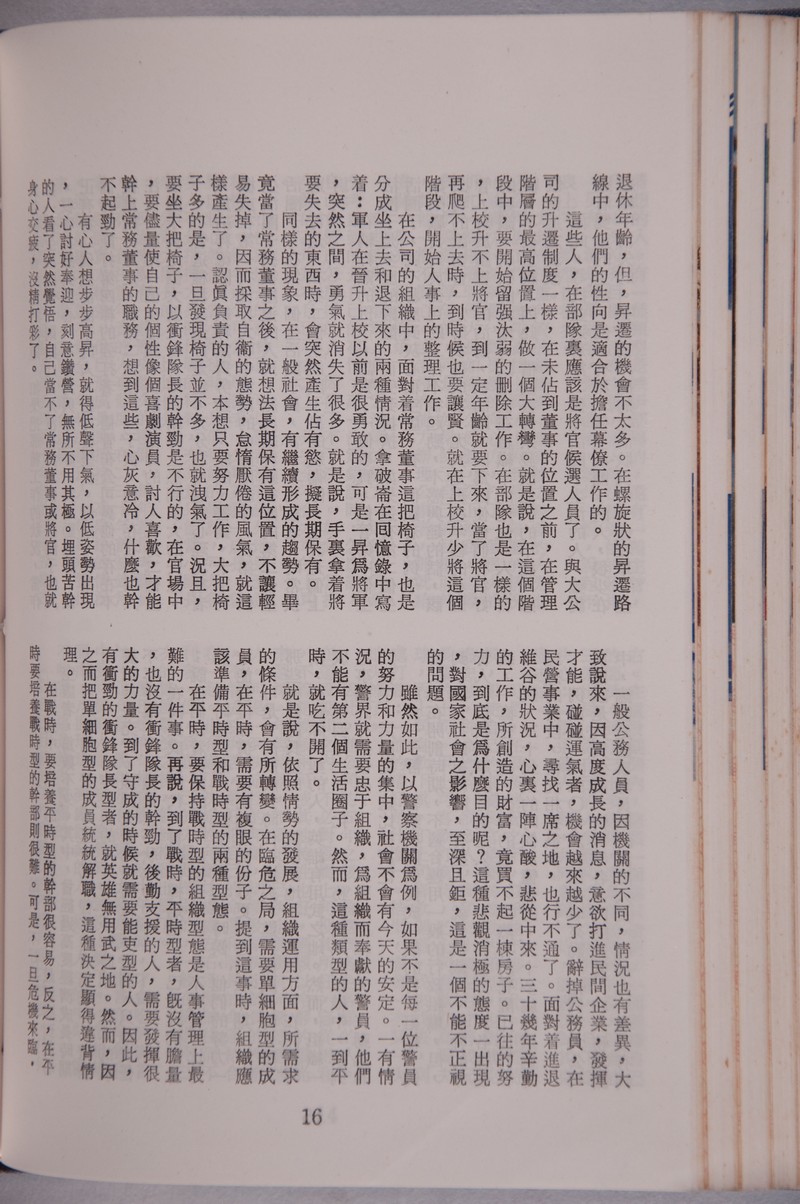 退休年齡，但，昇遷的機會不太多。在螺旋狀的昇遷路
線中，他們的性向是適合於擔任幕僚工作的。
這些人，在部隊裏應該是將官候選人員了。與大公
司的升遷制度一樣，在未佔到董事的位置之前，在管理
階層的最高位置上，做一個大轉彎。就是說，在這個階
段中，要開始留强汰弱的刪除工作。在部隊也是一樣的
，上校升不上將官，到一定年齡就要下來，當了將官，
再爬不上去時，到時候也要讓賢。就在上校升少將這個
階段，開始人事上的整理工作。
在公司的組織中，面對着常務董事這把椅子，也是
分成坐上去和退下來的兩種情況。拿破崙在回憶錄中寫
着：軍人在晉升上校以前是很勇敢的，可是一昇爲將軍
，突然之間，勇氣就消失了很多。就是說，手裏拿着將
要失去的東西時，會突然產生佔有慾，擬長期保有。
同樣的現象，在一般社會，有繼續形成的趨勢。畢
竟當了常務董事之後，就想法長期保有這位置，不讓輕
易失掉，因而採取自衛的態勢，怠惰厭倦的風氣，就這
樣產生了。認眞負責的人，本想只要努力工作，大把椅
子多的是，一旦發現椅子並不多，也就洩氣了。況且，
要坐大把椅子，以衝鋒隊長的幹勁是不行的，在官場中
，要儘量使自己的個性像個喜劇演員，討人喜歡，才能
幹上常務董事的職務，想到這些，心灰意冷，什麼也幹
不起勁了。
有心人想步步高昇，就得低聲下氣，以低姿勢出現
，一心討好奉迎，刻意鑽營，無所不用其極。埋頭苦幹
的人看了突然覺悟，自己當不了常務董事或將官，也就
身心交疲，沒精打彩了。
一般公務人員，因機關的不同，情況也有差異，大
致說來，因高度成長的消息，意欲打進民間企業，發揮
才能，碰碰運氣者，機會越來越少了。辭掉公務員，在
民營事業中，尋找一席之地，也行不通了。面對着進退
維谷的狀況，心裏一陣心酸，悲從中來。三十幾年辛勤
的工作，所創造的財富，竟買不起一棟房子。已往的努
力，到底是爲什麼目的呢？這種悲觀消極的態度一出現
，對國家社會之影響，至深且鉅，這是一個不能不正視
的問題。
雖然如此，以警察機關爲例，如果不是每一位警員
的努力和力量的集中，社會不會有今天的安定。一有情
況，警界就需要忠于組織，爲組織而奉獻的警員，他們
不能有第二個生活圈子。然而，這種類型的人，一到平
時，就吃不開了。
就是說，依照情勢的發展，組織運用方面，所需求
的條件，會有所轉變。在臨危之局，需要單細胞型的成
員，在平時，需要有複眼的份子。提到這事時，組織應
該準備平時型和戰時型的兩種型態。
在平時，要保持戰時型的組織型態是人事管理上最
難的一件事。再說，到了戰時，平時型者，既沒有膽量
，也沒有衝鋒隊長的幹勁，後勤支援的人，需要發揮很
大的力量。到了守成的時候就需要能吏型的人。因此，
有衝勁的衝鋒隊長型者，就英雄無用武之地。然而，因
之而把單細胞型的成員統統解職，這種決定顯得違背情
理。
在戰時，要培養平時型的幹部很容易，反之，在平
時要培養戰時型的幹部則很難。可是，一旦危機來臨，
16